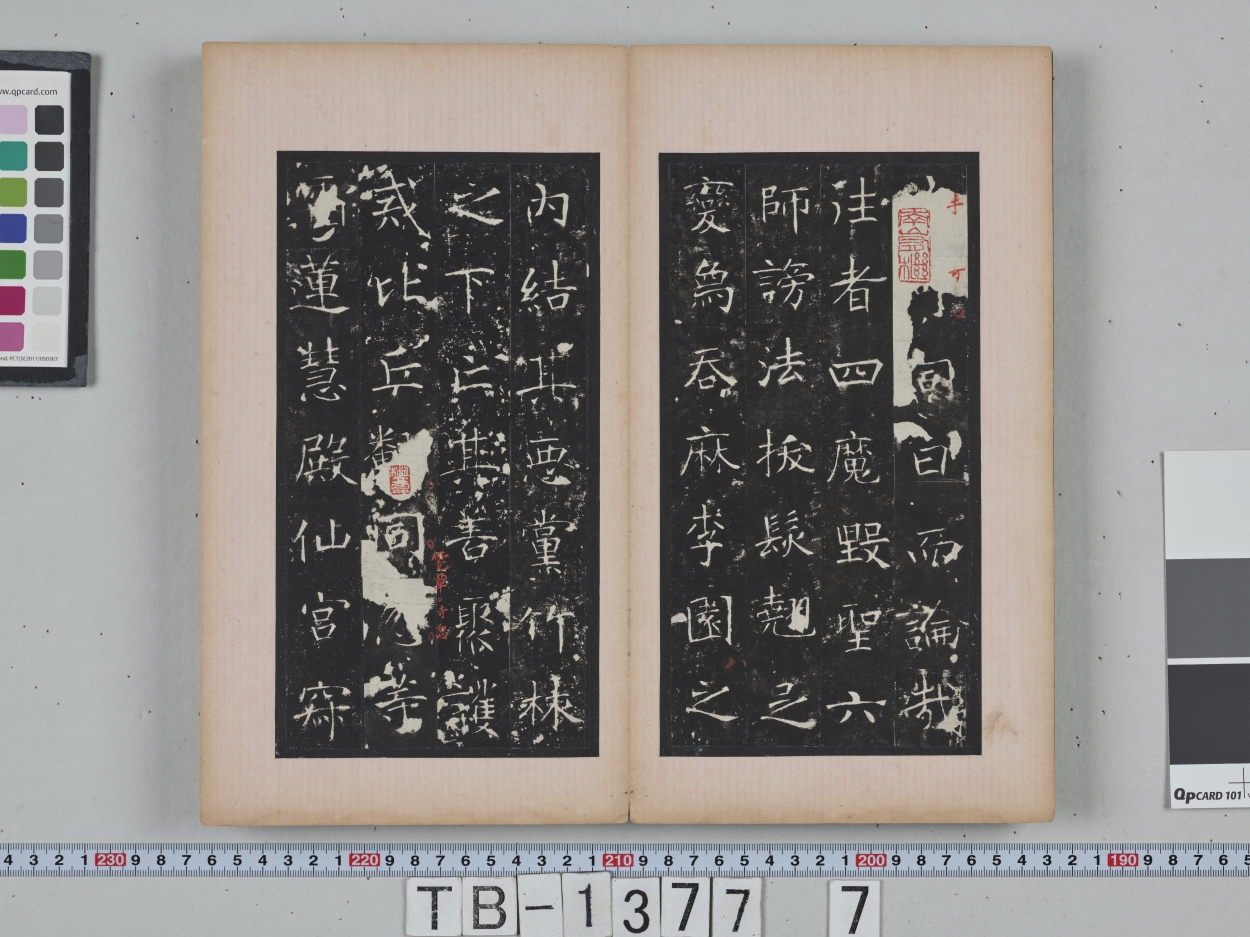 同日而論哉
往者四魔毀聖六
師謗法拔髮翹足
變爲吞麻李園之
内結其惡黨竹林
之下亡其善聚護
戒比丘翻同
等
蓮慧殿仙宮寂
www.qpcard.com
QPCARD 101
4 3 2 1 230 9 8 7 6 5 4 3 2 1 220 9 8 7 6 5 4 3 2 1 210 9 8 7 6 5 4 3 2 1 200 9 8 7 6 5 4 3 2 1 190 9 8 7 6 5
TB-1377 7